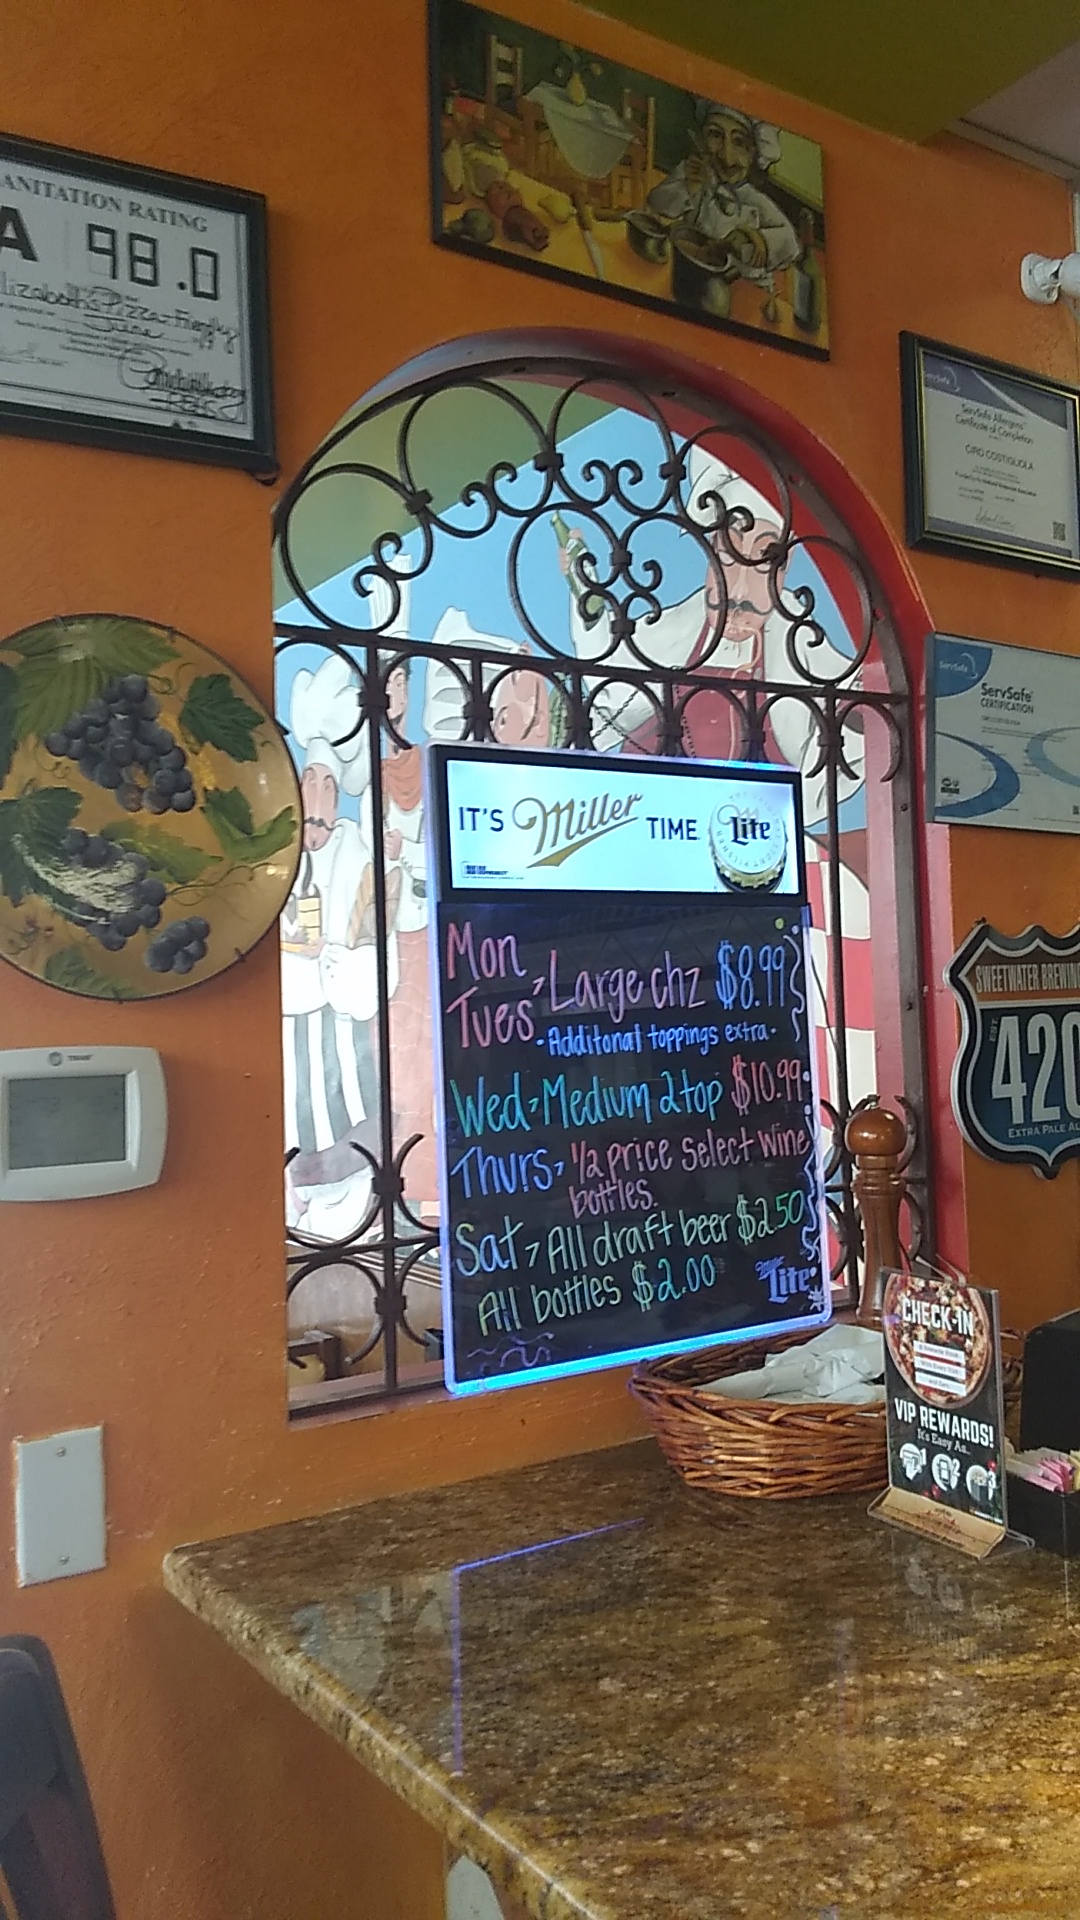 ANITATION RATING
A 98.0
lizabeth's Pizza-
June
REHS
ServSafe
ServSafe Allergens™
Certificate of Completion
CIRO COSTIGLIOLA
ServSafe
ServSafe®
CERTIFICATION
IT'S Miller TIME
Lite
Mon
Tues, Large chz $8.99
-Additonal toppings extra-
Wed, Medium 2 top $10.99
Thurs, 1/2 price select wine
bottles.
Sat, All draft beer $2.50
All bottles $2.00
Miller
Lite
SWEETWATER BREWIN
EST.
420
EXTRA PALE AL
CHECK-IN
VIP REWARDS!
It's Easy As..
1 2 3
TRANE